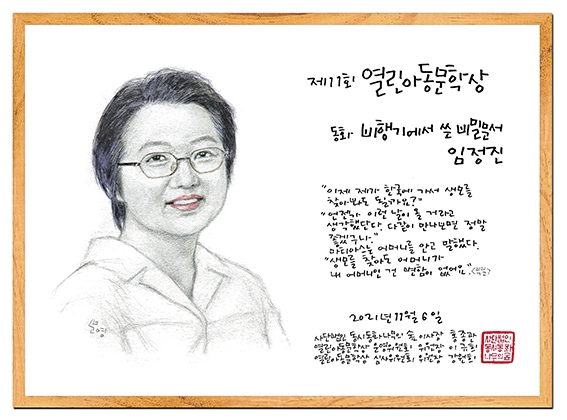 제11회 열린아동문학상
동화 비행기에서 쓴 비밀문서
임정진
"이제 제가 한국에 가서 생모를
찾아봐도 될까요?"
"언젠가 이런 날이 올 거라고
생각했단다. 다같이 만나보면 정말
좋겠구나."
마티아스는 어머니를 안고 말했다.
"생모를 찾아도 어머니가
내 어머니인 건 변함이 없어요."
2021년 11월 6일
사단법인 동시동화나무의 숲 이사장 홍종관
열린아동문학상 운영위원회 위원장
열린아동문학상 심사위원회 위원장
사단법인
동시동화
나무의숲